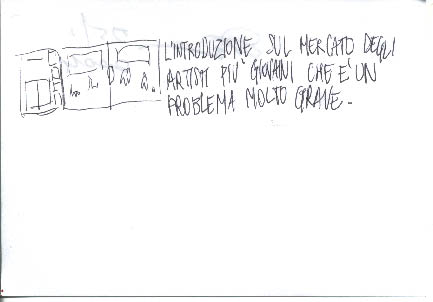 L'INTRODUZIONE SUL MERCATO DEGLI
ARTISTI PIU' GIOVANI CHE E' UN
PROBLEMA MOLTO GRAVE.